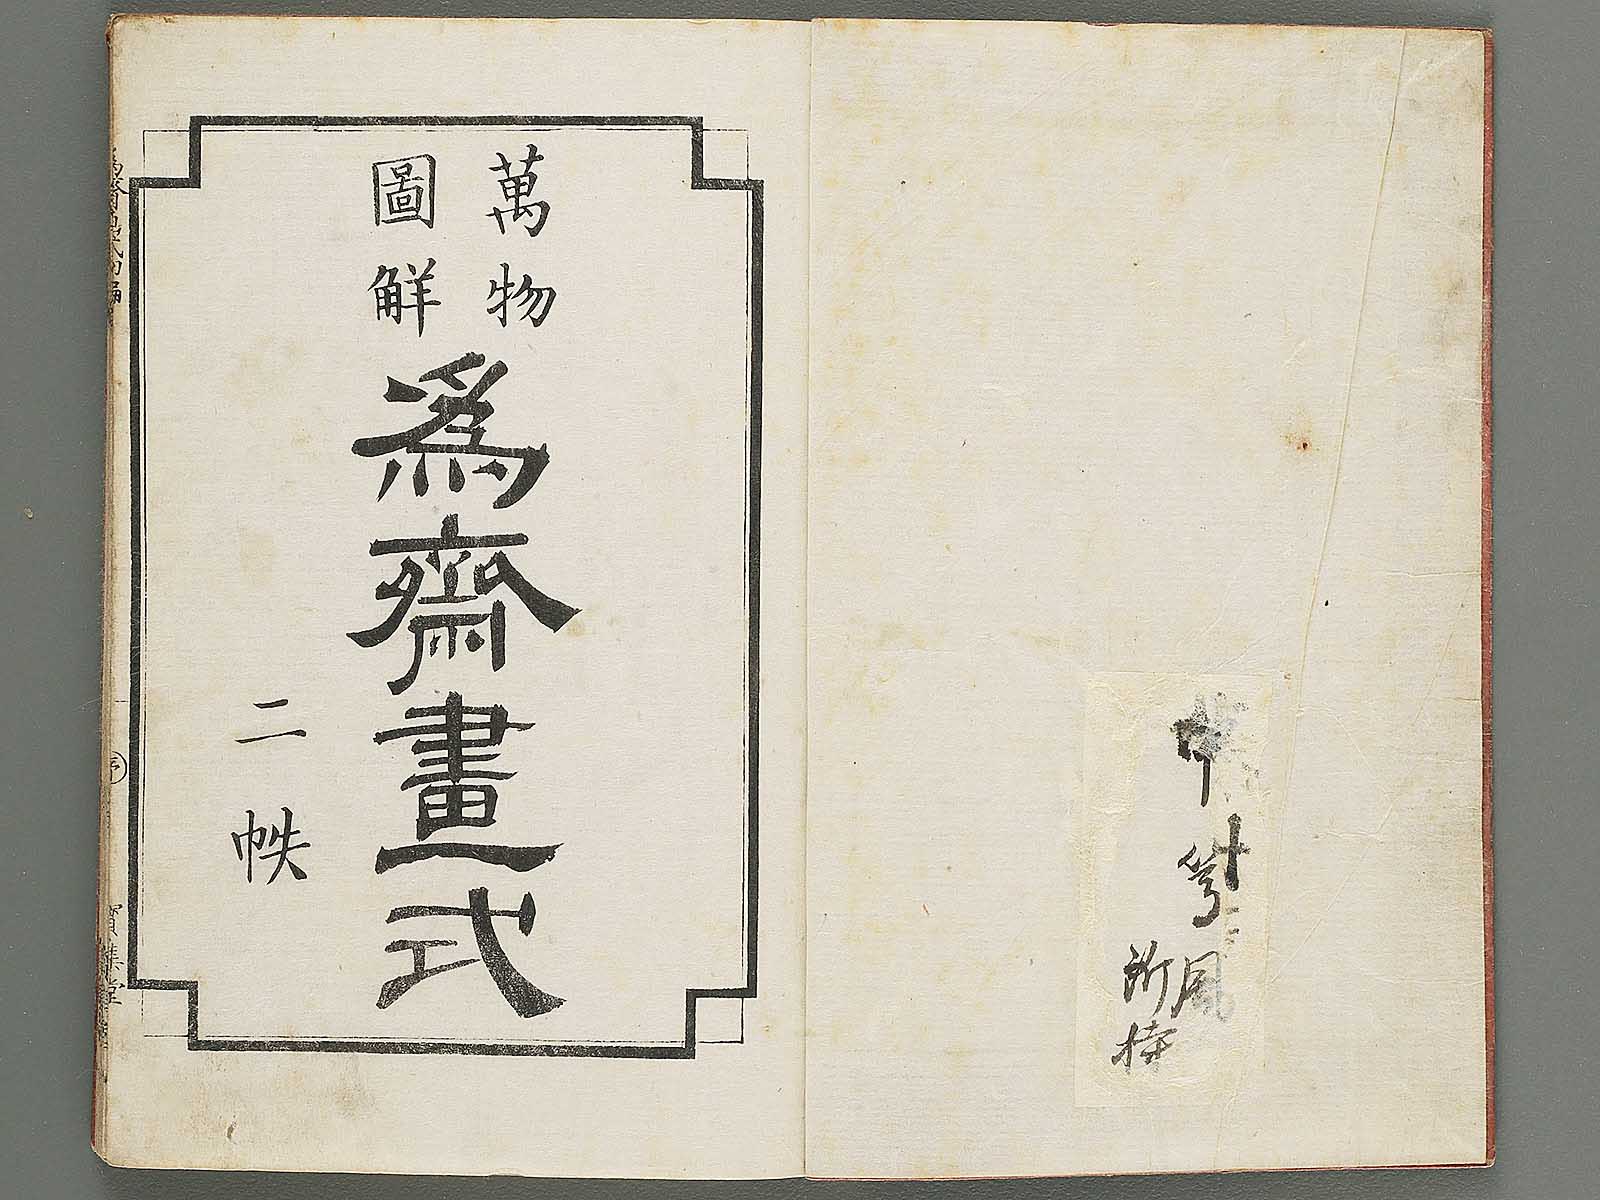 萬物
圖觧
爲齋畫式
二帙
所持
寶集堂